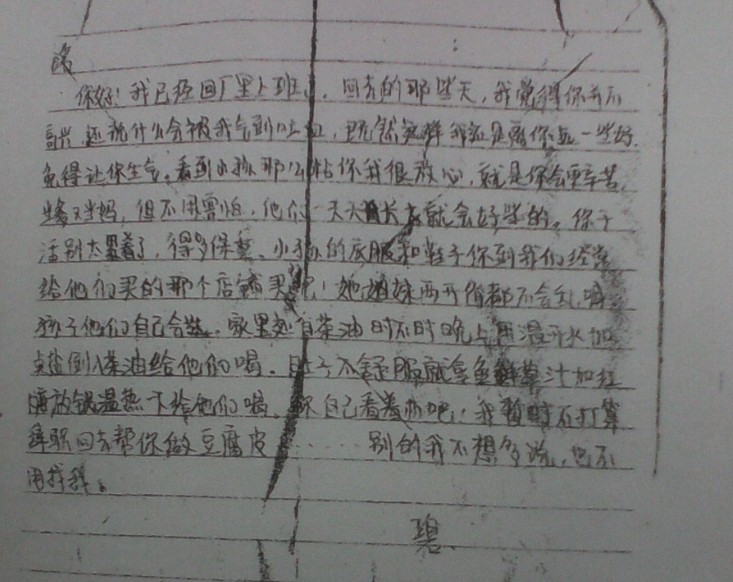 你好！我已经回厂里上班，回去的那些天，我觉得你并不
高兴，还说什么会被我气到吐血，既然这样我还是离你远一些好，
免得让你生气。看到小孩那么粘你我很放心，就是你会更辛苦，
当爸又当妈，但不用害怕，他们一天天长大就会好些的。你干
活别太累着了，得多保重、小孩的衣服和鞋子你到我们经常
给他们买的那个店铺买吧！她姐妹两开销都不会乱，
孩子他们自己会，家里还有茶油时不时晚上用温开水加
点盐倒入茶油给他们喝，肚子不舒服就拿鱼鲜草汁加红
糖放锅温热下给他们喝，你自己看着办吧！我暂时不打算
辞职回去帮你做豆腐皮……别的我不想多说，也不
用找我。
碧